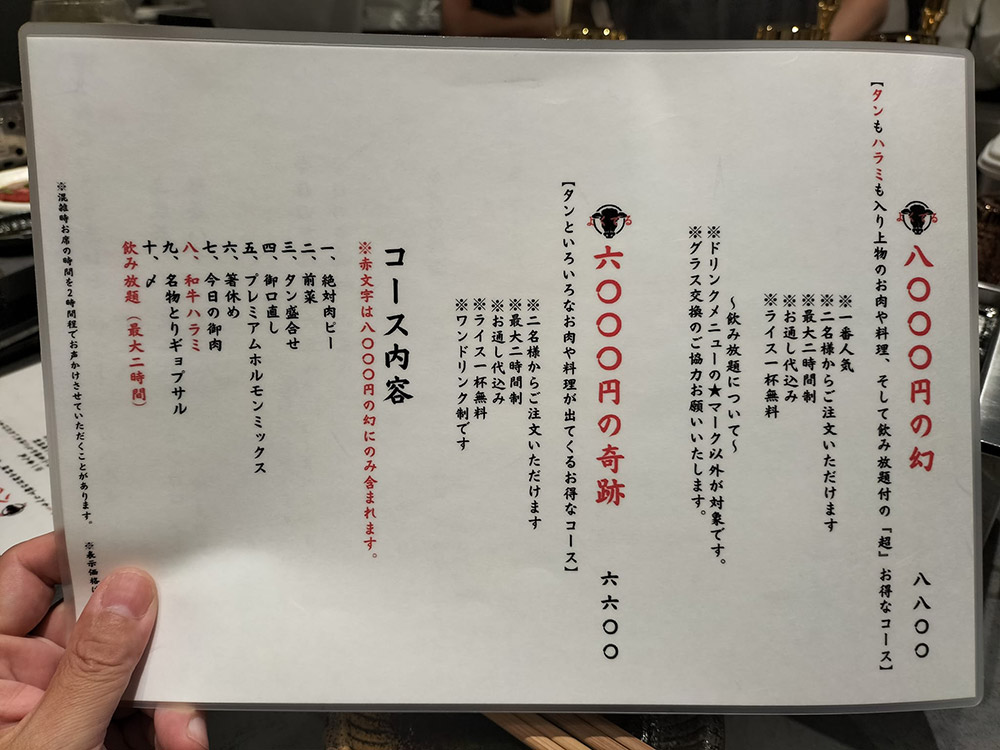 【タンもハラミも入り上物のお肉や料理、そして飲み放題付の「超」お得なコース】
八〇〇〇円の幻 八八〇〇
※一番人気
※二名様からご注文いただけます
※最大二時間制
※お通し代込み
※ライス一杯無料
〜飲み放題について〜
※ドリンクメニューの★マーク以外が対象です。
※グラス交換のご協力お願いいたします。
六〇〇〇円の奇跡 六六〇〇
【タンといろいろなお肉や料理が出てくるお得なコース】
※二名様からご注文いただけます
※最大二時間制
※お通し代込み
※ライス一杯無料
※ワンドリンク制です
コース内容
※赤文字は八〇〇〇円の幻にのみ含まれます。
一、絶対肉ビー
二、前菜
三、タン盛合せ
四、御口直し
五、プレミアムホルモンミックス
六、箸休め
七、今日の御肉
八、和牛ハラミ
九、名物とりギョプサル
十、〆
飲み放題（最大二時間）
※混雑時お席の時間を2時間程でお声かけさせていただくことがあります。 ※表示価格